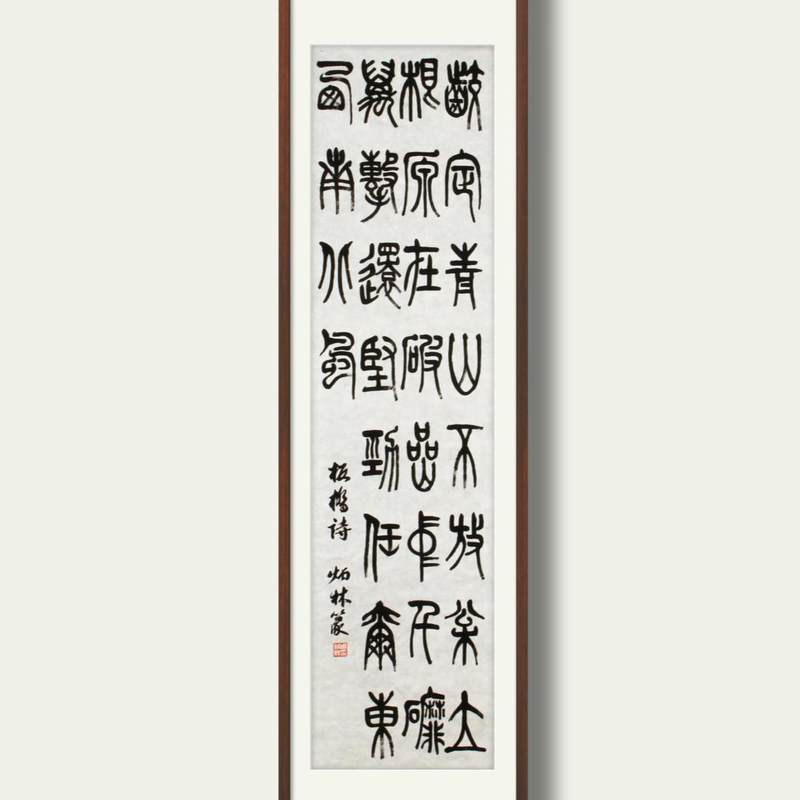 齩定青山不放枀立
根原在破嵒中千磨
萬擊還堅勁任爾東
西南北風
板橋詩 炳林篆